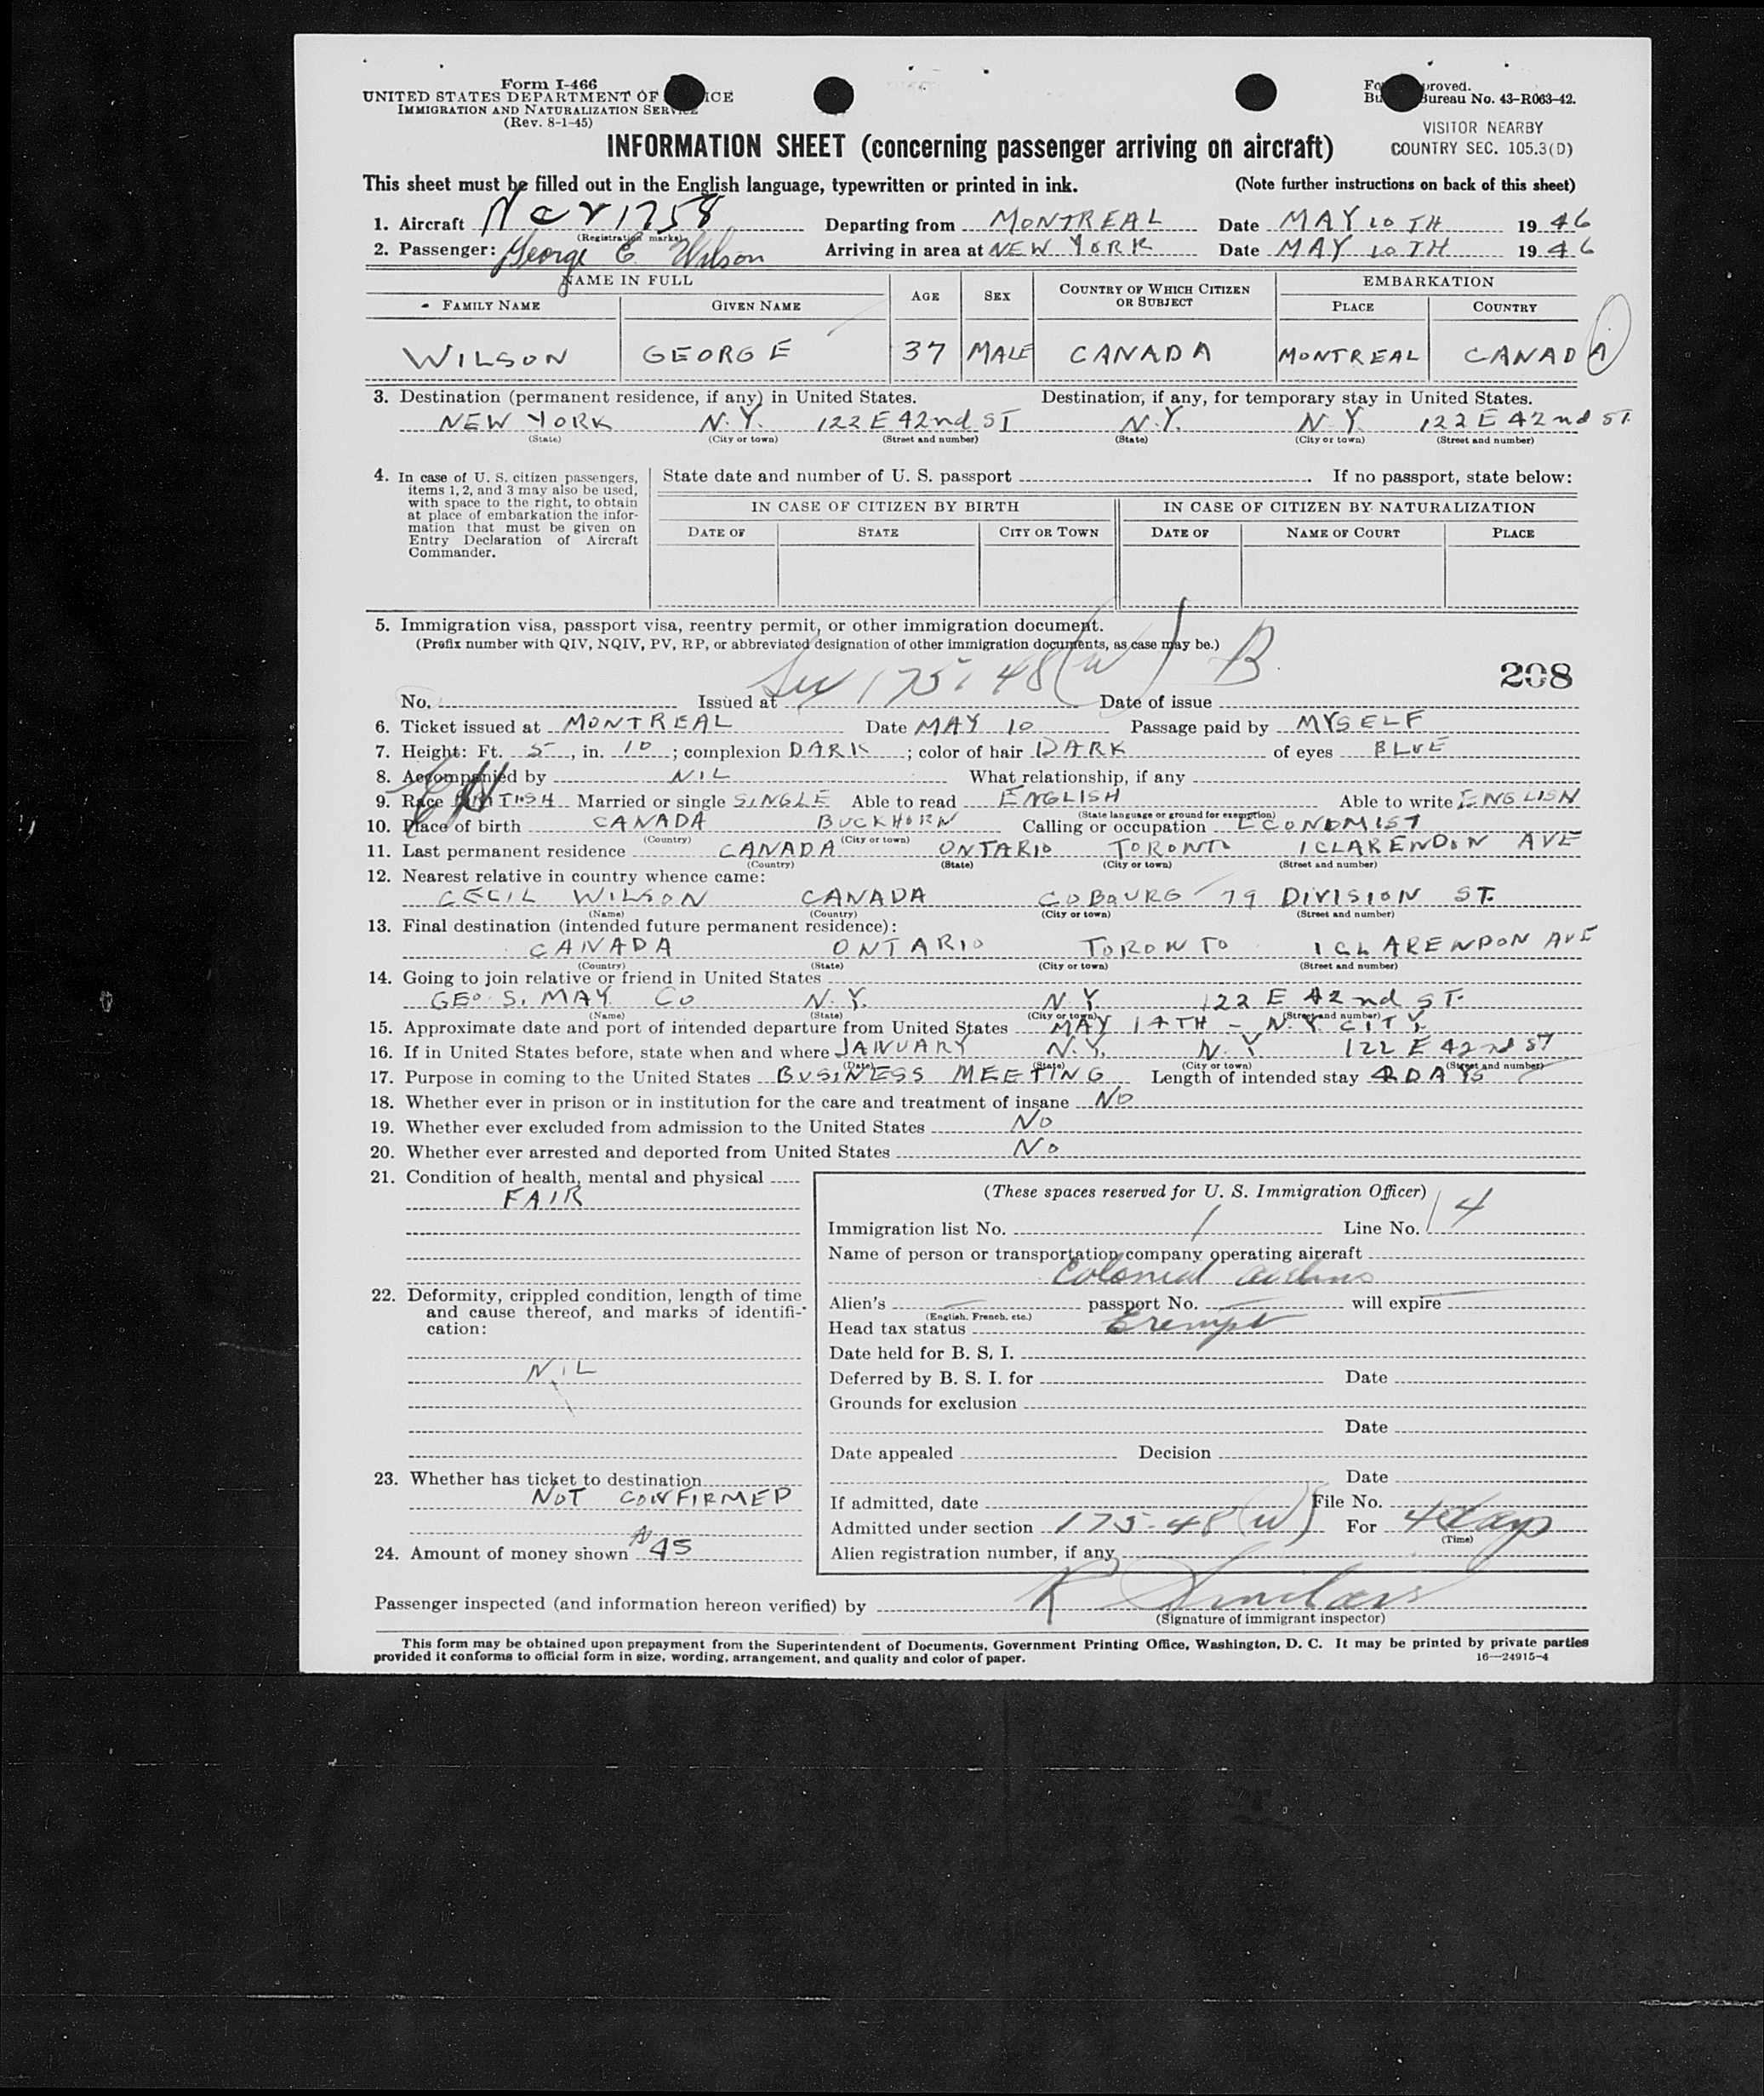 Form I-466
UNITED STATES DEPARTMENT OF ICE
IMMIGRATION AND NATURALIZATION SERVICE
(Rev. 8-1-45)
Fo proved.
Bu Bureau No. 43-R063-42.
VISITOR NEARBY
COUNTRY SEC. 105.3(D)
INFORMATION SHEET (concerning passenger arriving on aircraft)
This sheet must be filled out in the English language, typewritten or printed in ink. (Note further instructions on back of this sheet)
1. Aircraft 1758 Departing from MONTREAL Date MAY 10 TH 1946
(Registration marks)
2. Passenger: George E. Wilson Arriving in area at NEW YORK Date MAY 10 TH 1946
NAME IN FULL AGE SEX COUNTRY OF WHICH CITIZEN OR SUBJECT EMBARKATION
FAMILY NAME GIVEN NAME PLACE COUNTRY
WILSON GEORGE 37 MALE CANADA MONTREAL CANADA
3. Destination (permanent residence, if any) in United States. Destination, if any, for temporary stay in United States.
NEW YORK N.Y. 122 E 42nd ST N.Y. N.Y. 122 E 42nd ST.
(State) (City or town) (Street and number) (State) (City or town) (Street and number)
4. In case of U. S. citizen passengers, items 1, 2, and 3 may also be used, with space to the right, to obtain at place of embarkation the information that must be given on Entry Declaration of Aircraft Commander.
State date and number of U. S. passport If no passport, state below:
IN CASE OF CITIZEN BY BIRTH IN CASE OF CITIZEN BY NATURALIZATION
DATE OF STATE CITY OR TOWN DATE OF NAME OF COURT PLACE
5. Immigration visa, passport visa, reentry permit, or other immigration document.
(Prefix number with QIV, NQIV, PV, RP, or abbreviated designation of other immigration documents, as case may be.)
175.48(w) B
208
No. Issued at Date of issue
6. Ticket issued at MONTREAL Date MAY 10 Passage paid by MYSELF
7. Height: Ft. 5, in. 10; complexion DARK; color of hair DARK of eyes BLUE
8. Accompanied by NIL What relationship, if any
9. Race BRITISH Married or single SINGLE Able to read ENGLISH Able to write ENGLISH
(State language or ground for exemption)
10. Place of birth CANADA BUCKHORN Calling or occupation ECONOMIST
(Country) (City or town)
11. Last permanent residence CANADA ONTARIO TORONTO 1 CLARENDON AVE
(Country) (State) (City or town) (Street and number)
12. Nearest relative in country whence came:
CECIL WILSON CANADA COBOURG 79 DIVISION ST.
(Name) (Country) (City or town) (Street and number)
13. Final destination (intended future permanent residence):
CANADA ONTARIO TORONTO 1 CLARENDON AVE
(Country) (State) (City or town) (Street and number)
14. Going to join relative or friend in United States
GEO. S. MAY CO N.Y. N.Y. 122 E 42nd ST.
(Name) (State) (City or town) (Street and number)
15. Approximate date and port of intended departure from United States MAY 14TH - N.Y. CITY
16. If in United States before, state when and where JANUARY N.Y. N.Y. 122 E 42nd ST
(Date) (State) (City or town) (Street and number)
17. Purpose in coming to the United States BUSINESS MEETING Length of intended stay 4 DAYS
18. Whether ever in prison or in institution for the care and treatment of insane NO
19. Whether ever excluded from admission to the United States NO
20. Whether ever arrested and deported from United States NO
21. Condition of health, mental and physical
FAIR
22. Deformity, crippled condition, length of time and cause thereof, and marks of identification:
NIL
23. Whether has ticket to destination
NOT CONFIRMED
24. Amount of money shown 45
(These spaces reserved for U. S. Immigration Officer)
Immigration list No. 1 Line No. 14
Name of person or transportation company operating aircraft
Colonial Airlines
Alien's passport No. will expire
(English, French, etc.)
Head tax status Exempt
Date held for B. S. I.
Deferred by B. S. I. for Date
Grounds for exclusion
Date
Date appealed Decision
Date
If admitted, date File No.
Admitted under section 175.48(w) For 4 days
(Time)
Alien registration number, if any
Passenger inspected (and information hereon verified) by
(Signature of immigrant inspector)
This form may be obtained upon prepayment from the Superintendent of Documents, Government Printing Office, Washington, D. C. It may be printed by private parties
provided it conforms to official form in size, wording, arrangement, and quality and color of paper.
16—24915-4